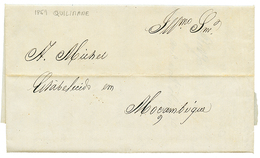 1863 QUILIMANE
Illmo Snr.
A. Michel
Estabelecido em
Moçambique